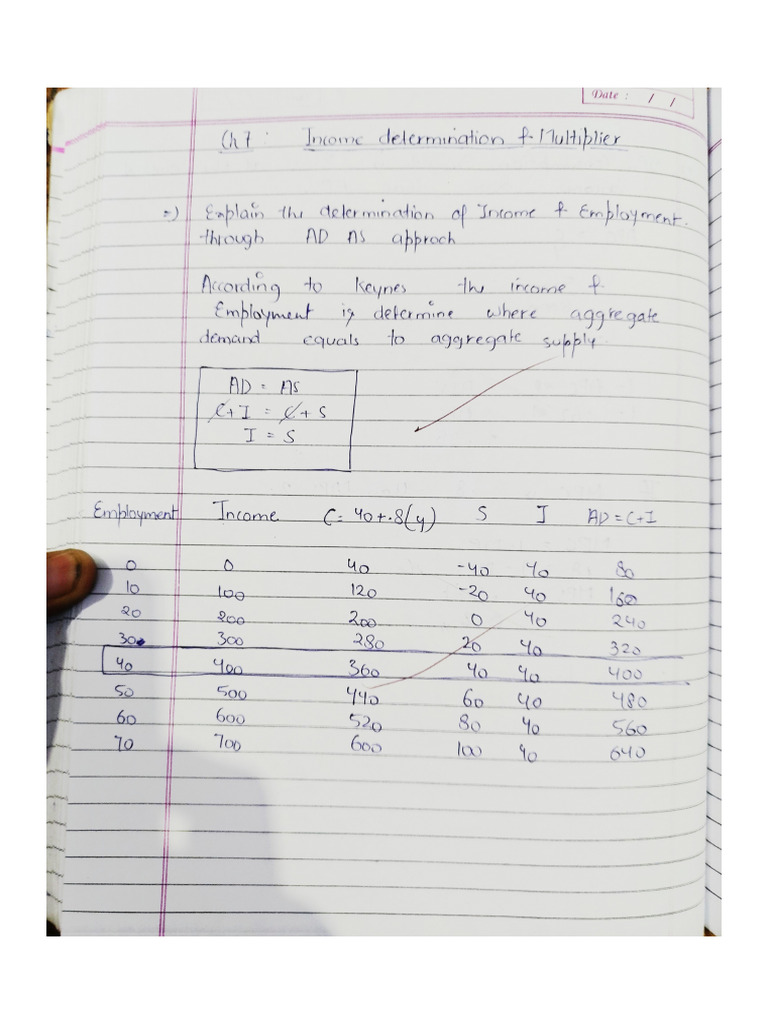 Date : / /
Ch 7 : Income determination & Multiplier
=) Explain the determination of Income & Employment.
through AD AS approch
According to Keynes the income &
Employment is determine where aggregate
demand equals to aggregate supply.
AD = AS
C+I = C+S
I = S
Employment Income C=40+.8(y) S I AD=C+I
0 0 40 -40 40 80
10 100 120 -20 40 160
20 200 200 0 40 240
30 300 280 20 40 320
40 400 360 40 40 400
50 500 440 60 40 480
60 600 520 80 40 560
70 700 600 100 40 640